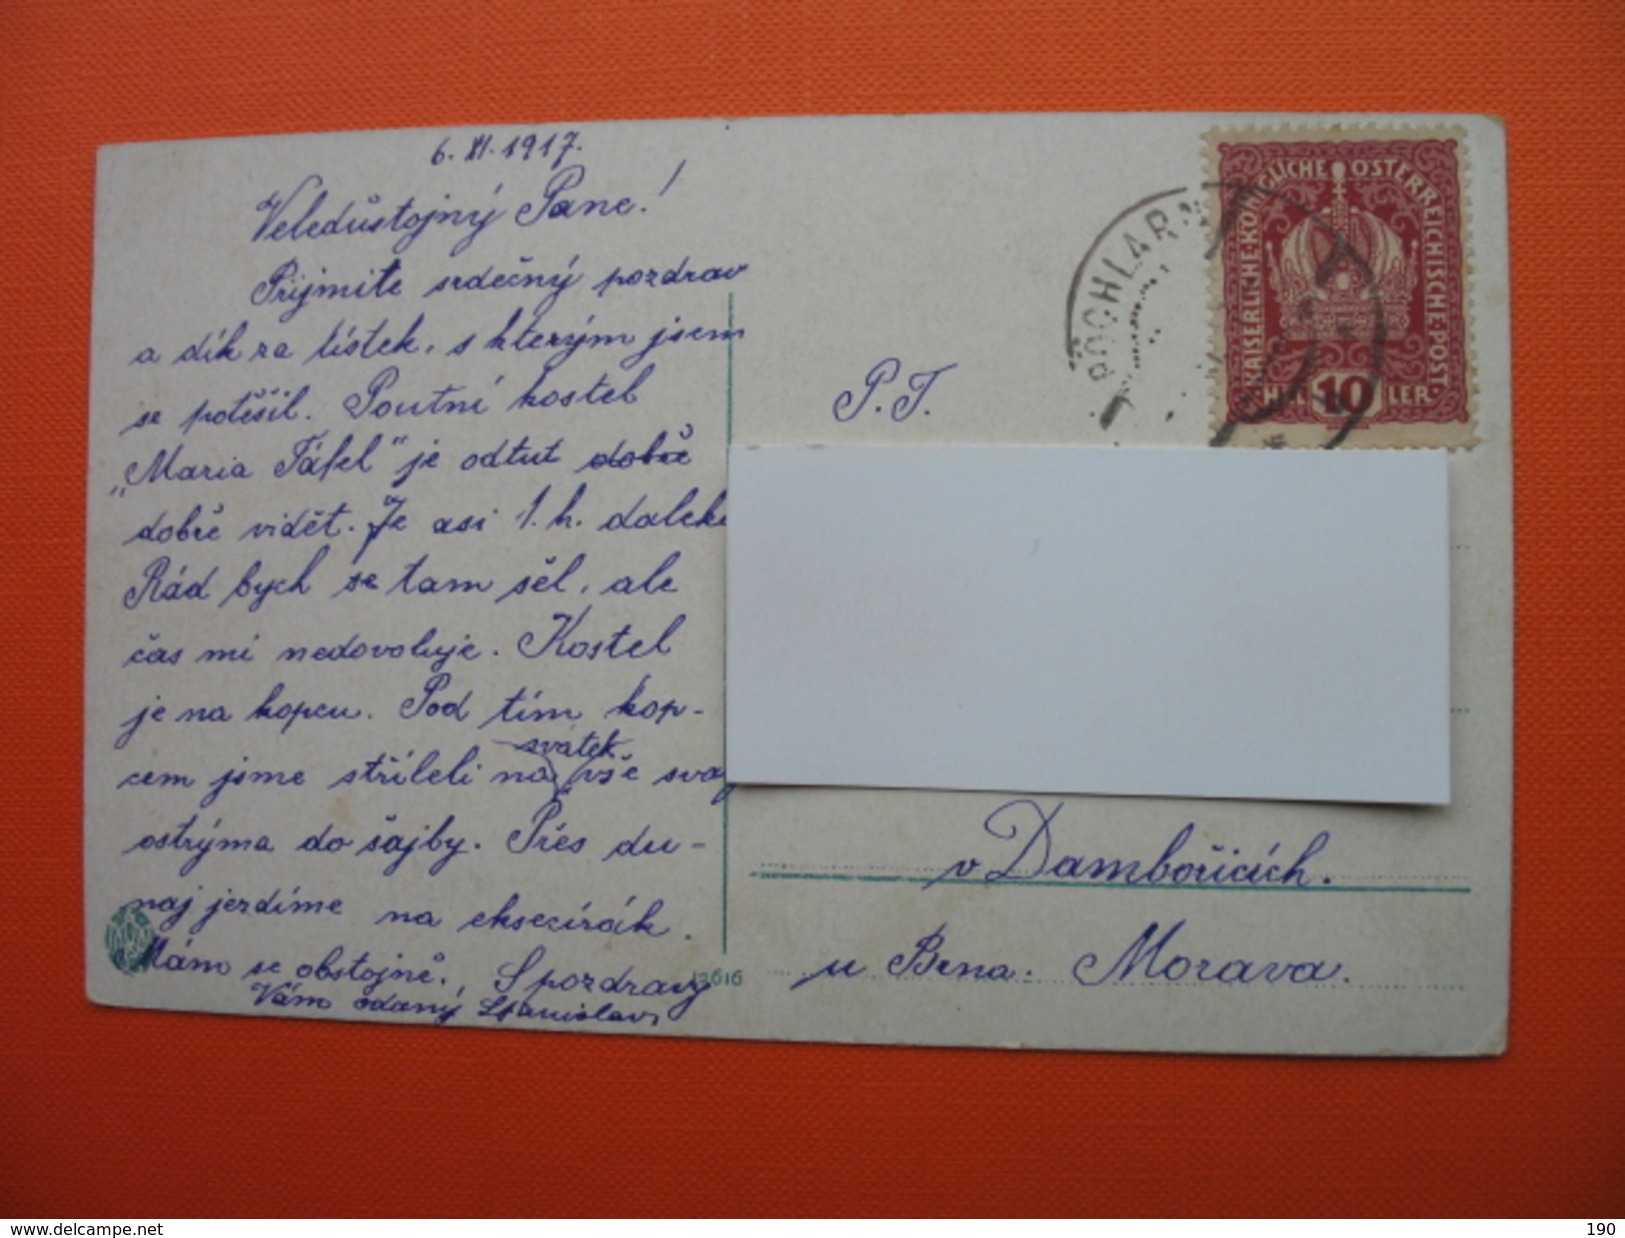 6. XI. 1917.
Veledůstojný Pane!
Přijmite srdečný pozdrav
a dík za lístek, s kterým jsem
se potěšil. Poutní kostel
„Maria Táfel" je odtut dobře
dobře vidět. Je asi 1. h. daleko
Rád bych se tam šěl, ale
čas mi nedovoluje. Kostel
je na kopcu. Pod tím kop-
cem jsme stříleli na vše sva
svatek
ostrýma do šajby. Přes du-
naj jezdíme na eksecírák.
Mám se obstojně. S pozdravy
Vám odaný Stanislav
12616
PÖCHLARN
KAISERLICHE·KÖNIGLICHE ÖSTERREICHISCHE·POST·
HELLER 10
P. T.
v Dambořicích.
u Brna. Morava.
www.delcampe.net
190